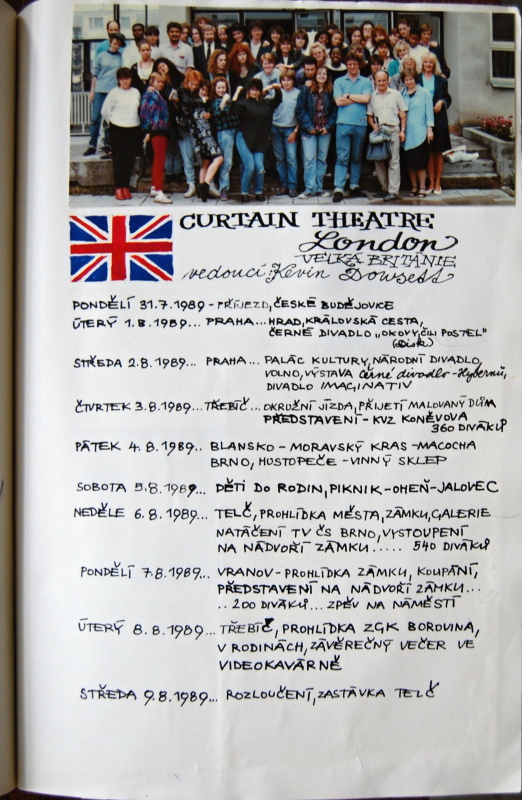 CURTAIN THEATRE
London
VELKÁ BRITÁNIE
vedoucí Kevin Dowsett
PONDĚLÍ 31.7.1989 - PŘÍJEZD, ČESKÉ BUDĚJOVICE
ÚTERÝ 1.8.1989... PRAHA... HRAD, KRÁLOVSKÁ CESTA,
ČERNÉ DIVADLO „OKOVY, ČILI POSTEL"
(Disk)
STŘEDA 2.8.1989... PRAHA... PALÁC KULTURY, NÁRODNÍ DIVADLO,
VOLNO, VÝSTAVA černé divadlo - Hybernů,
DIVADLO IMAGINATIV
ČTVRTEK 3.8.1989... TŘEBÍČ... OKRUŽNÍ JÍZDA, PŘIJETÍ MALOVANÝ DŮM
PŘEDSTAVENÍ - KVZ KONĚVOVA
360 DIVÁKŮ
PÁTEK 4.8.1989.. BLANSKO - MORAVSKÝ KRAS - MACOCHA
BRNO, HUSTOPEČE - VINNÝ SKLEP
SOBOTA 5.8.1989... DĚTI DO RODIN, PIKNIK - OHEŇ - JALOVEC
NEDĚLE 6.8.1989... TELČ, PROHLÍDKA MĚSTA, ZÁMKU, GALERIE
NATÁČENÍ TV ČS BRNO, VYSTOUPENÍ
NA NÁDVOŘÍ ZÁMKU..... 540 DIVÁKŮ
PONDĚLÍ 7.8.1989... VRANOV - PROHLÍDKA ZÁMKU, KOUPÁNÍ,
PŘEDSTAVENÍ NA NÁDVOŘÍ ZÁMKU...
.. 200 DIVÁKŮ... ZPĚV NA NÁMĚSTÍ
ÚTERÝ 8.8.1989... TŘEBÍČ, PROHLÍDKA ZGK BOROVINA,
V RODINÁCH, ZÁVĚREČNÝ VEČER VE
VIDEOKAVÁRNĚ
STŘEDA 9.8.1989... ROZLOUČENÍ, ZASTÁVKA TELČ